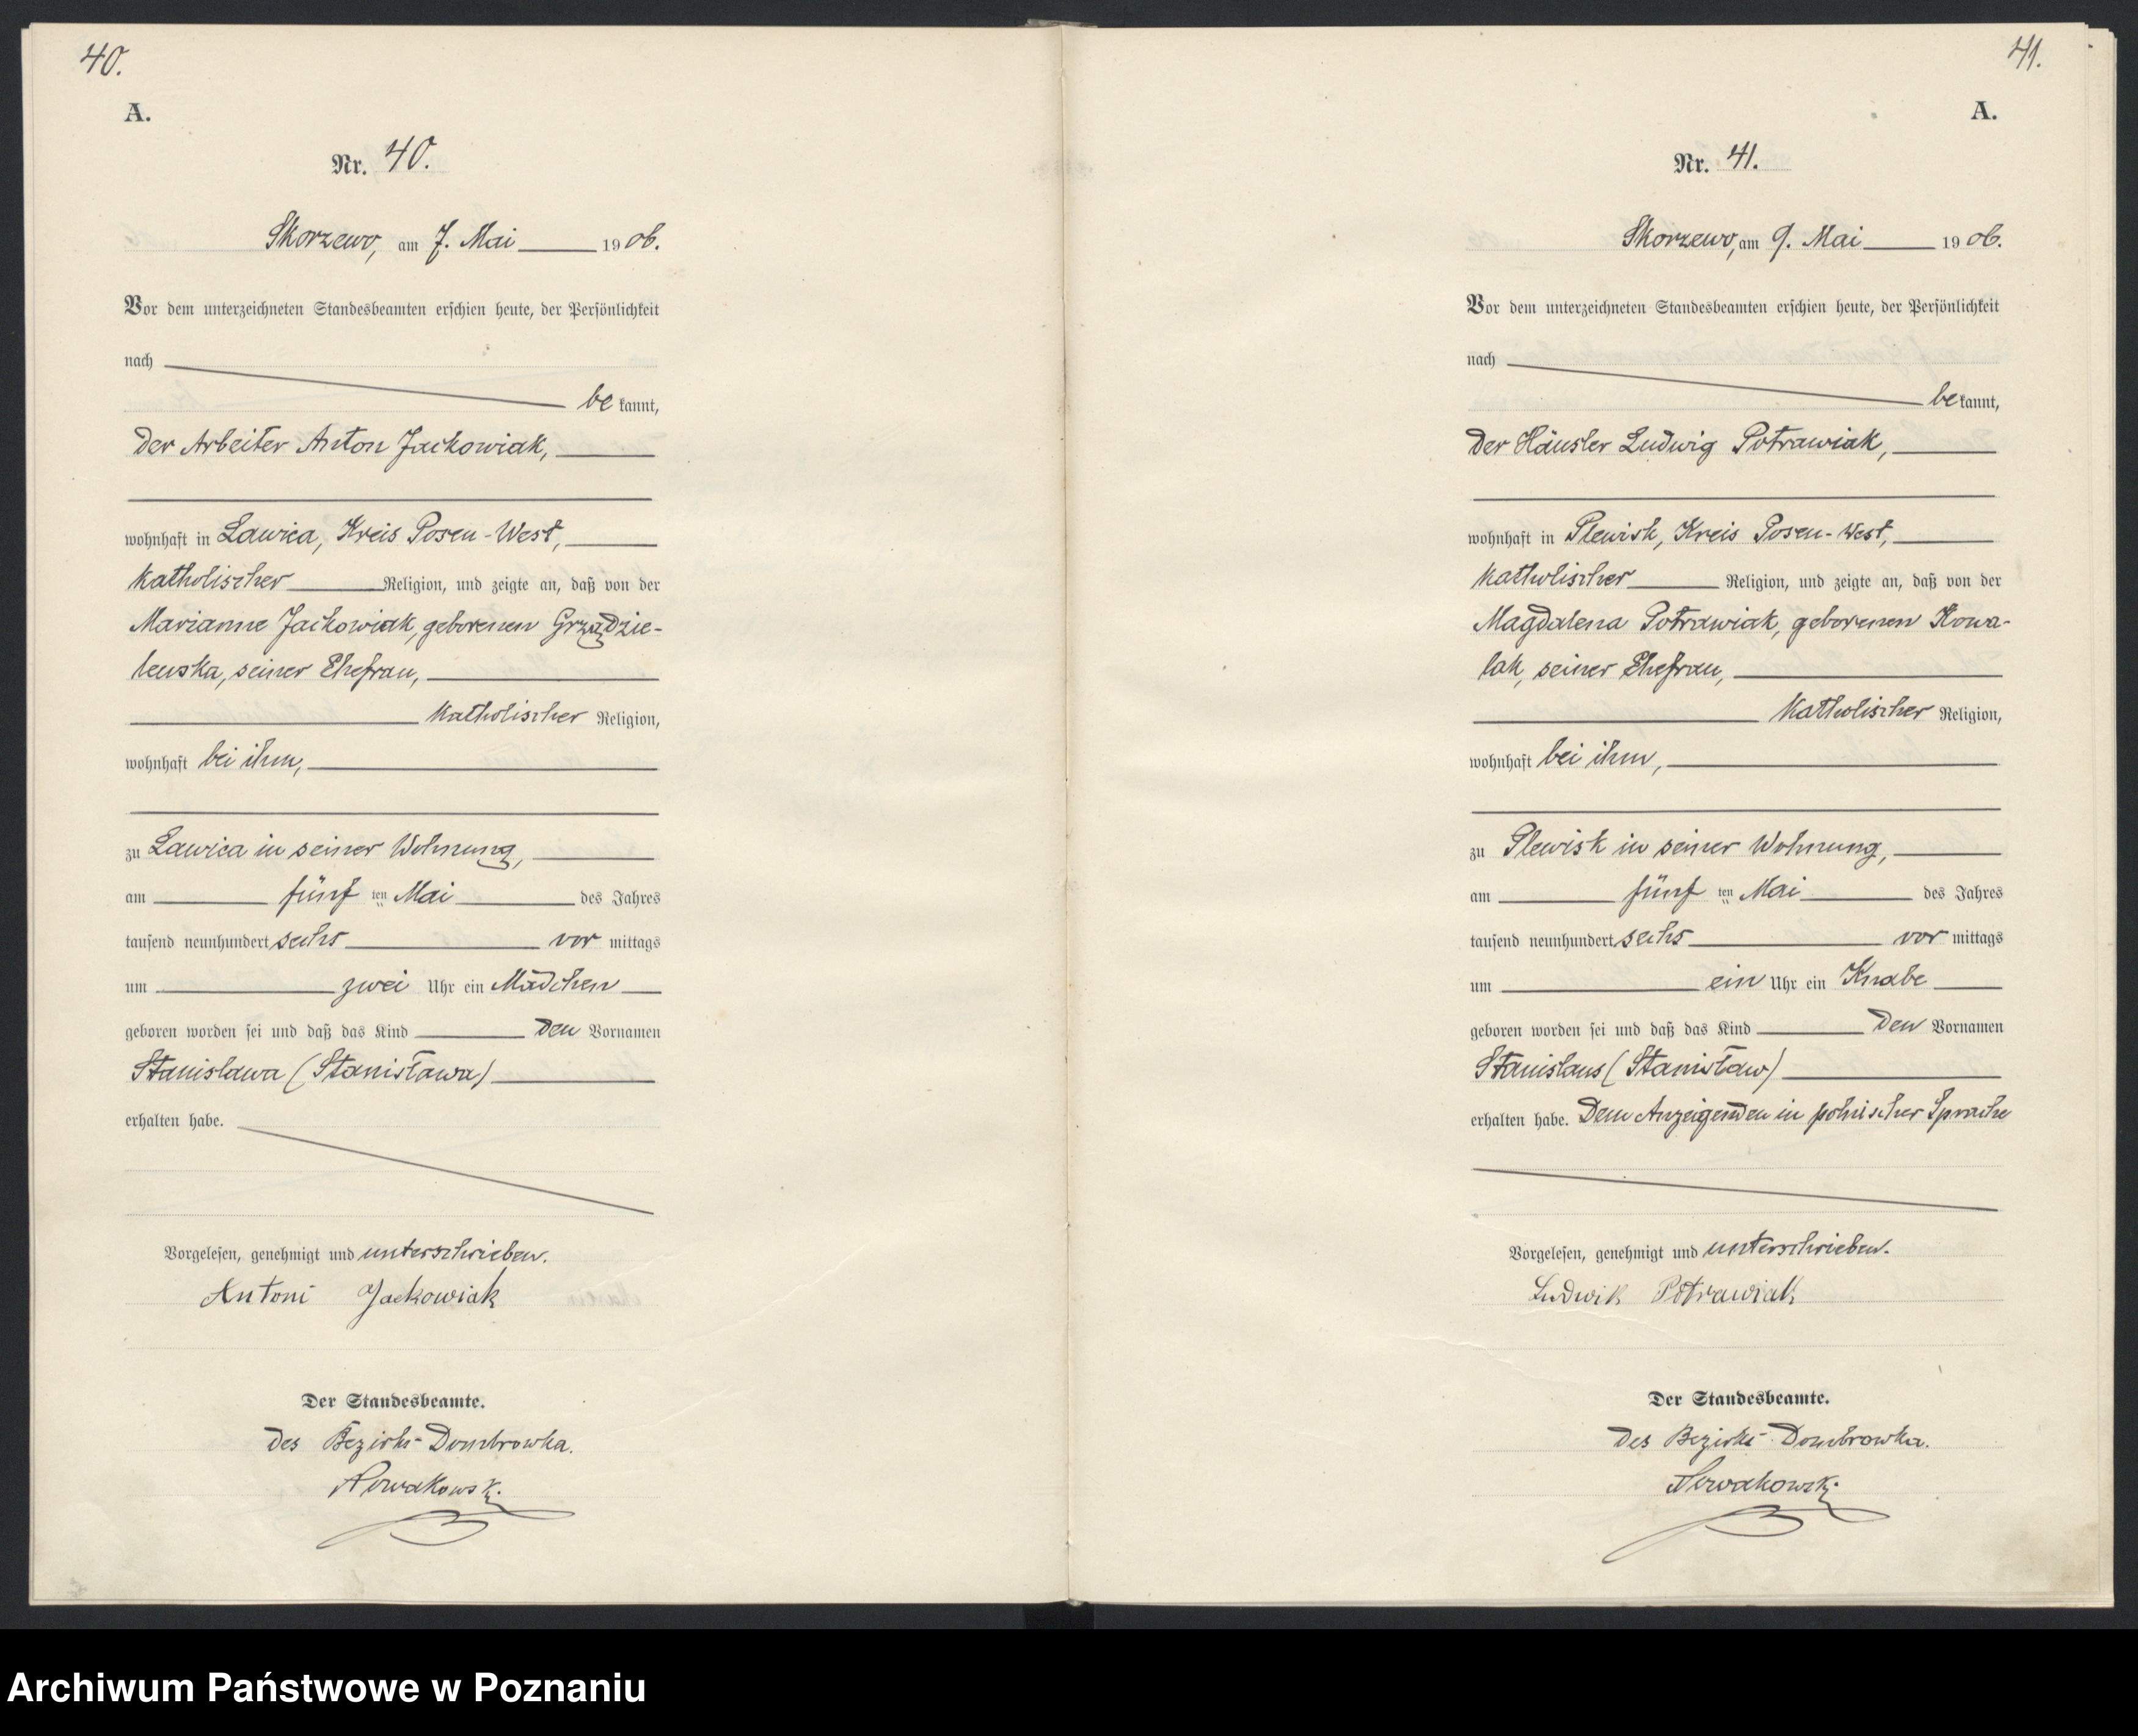 40.
A.
Nr. 40.
Skorzewo, am 7. Mai 1906.
Vor dem unterzeichneten Standesbeamten erschien heute, der Persönlichkeit
nach
bekannt,
der Arbeiter Anton Jackowiak,
wohnhaft in Lawica, Kreis Posen-West,
katholischer Religion, und zeigte an, daß von der
Marianne Jackowiak, geborenen Grządzie-
lewska, seiner Ehefrau,
katholischer Religion,
wohnhaft bei ihm,
zu Lawica in seiner Wohnung,
am fünf ten Mai des Jahres
tausend neunhundert sechs vor mittags
um zwei Uhr ein Mädchen
geboren worden sei und daß das Kind den Vornamen
Stanislawa (Stanisława)
erhalten habe.
Vorgelesen, genehmigt und unterschrieben.
Antoni Jackowiak
Der Standesbeamte.
des Bezirks Dombrowka.
Nowakowski
41.
A.
Nr. 41.
Skorzewo, am 9. Mai 1906.
Vor dem unterzeichneten Standesbeamten erschien heute, der Persönlichkeit
nach
bekannt,
der Häusler Ludwig Potrawiak,
wohnhaft in Plewisk, Kreis Posen-West,
katholischer Religion, und zeigte an, daß von der
Magdalena Potrawiak, geborenen Kowa-
lak, seiner Ehefrau,
katholischer Religion,
wohnhaft bei ihm,
zu Plewisk in seiner Wohnung,
am fünf ten Mai des Jahres
tausend neunhundert sechs vor mittags
um ein Uhr ein Knabe
geboren worden sei und daß das Kind den Vornamen
Stanislaus (Stanisław)
erhalten habe. Dem Anzeigenden in polnischer Sprache
Vorgelesen, genehmigt und unterschrieben.
Ludwik Potrawiak
Der Standesbeamte.
des Bezirks Dombrowka.
Nowakowski
Archiwum Państwowe w Poznaniu